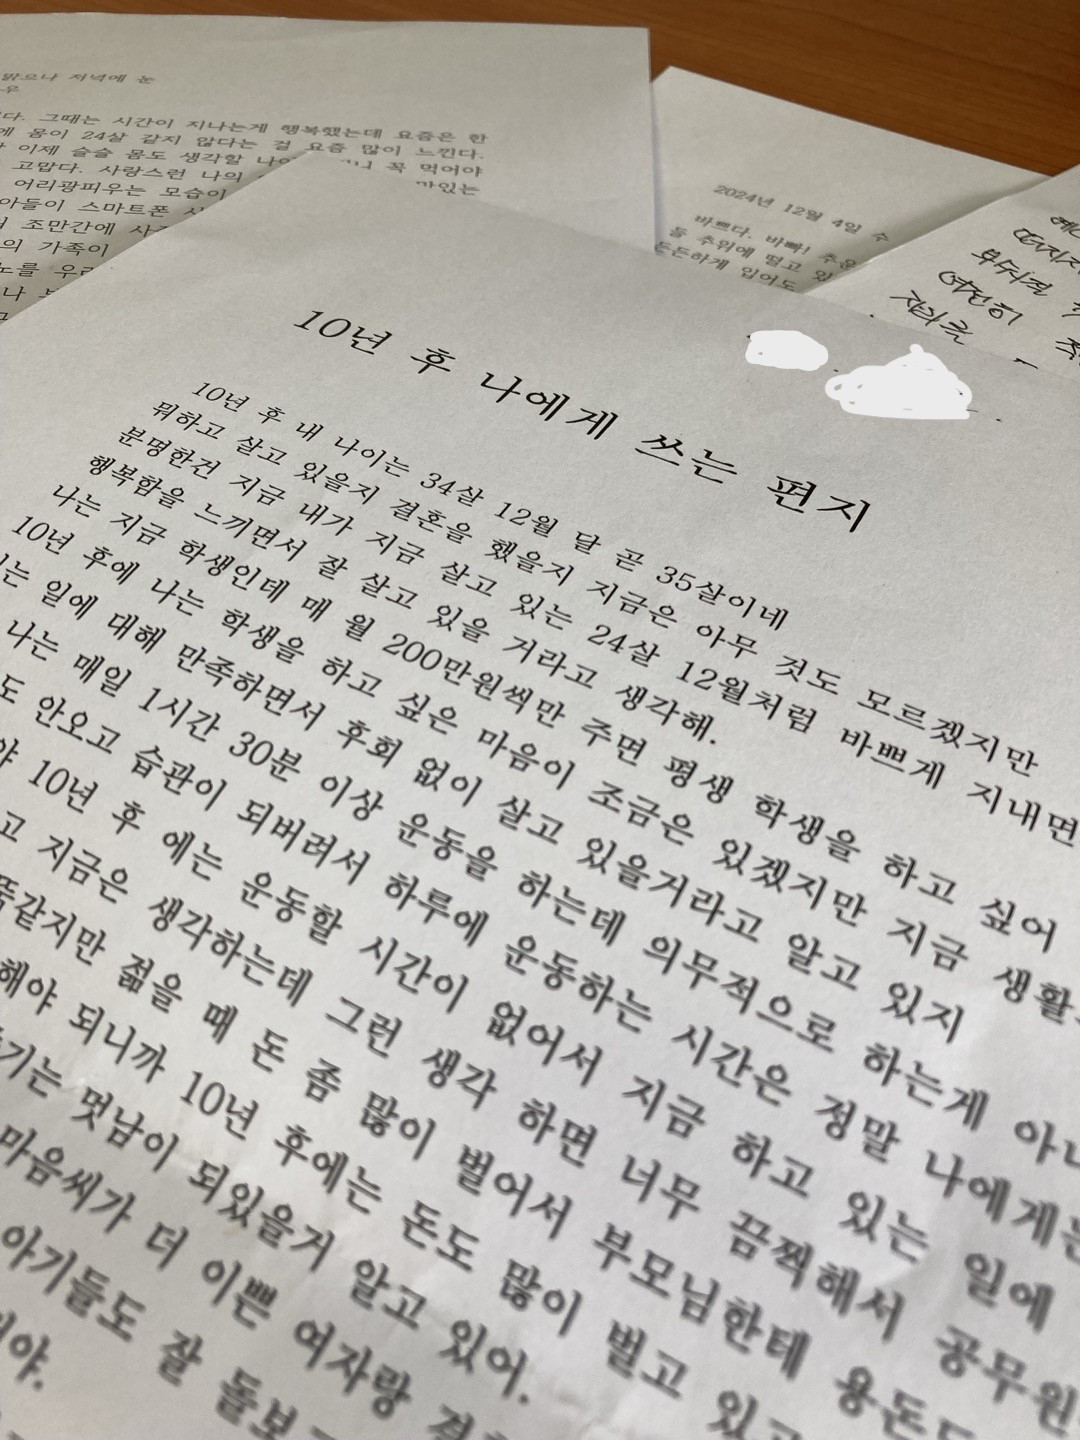 맑으나 저녁에 눈
우
다. 그때는 시간이 지나는게 행복했는데 요즘은 한
에 몸이 24살 같지 않다는 걸 요즘 많이 느낀다.
이제 슬슬 몸도 생각할 꼭 먹어야
고맙다. 사랑스런 나의
어리광피우는 모습이
아들이 스마트폰
조만간에
의 가족이
2024년 12월 4일 수
바쁘다. 바빠! 추운
들 추위에 떨고 있
든든하게 입어도
여전히
10년 후 나에게 쓰는 편지
10년 후 내 나이는 34살 12월 달 곧 35살이네
뭐하고 살고 있을지 결혼을 했을지 지금은 아무 것도 모르겠지만
분명한건 지금 내가 지금 살고 있는 24살 12월처럼 바쁘게 지내면
행복함을 느끼면서 잘 살고 있을 거라고 생각해.
나는 지금 학생인데 매 월 200만원씩만 주면 평생 학생을 하고 싶어
10년 후에 나는 학생을 하고 싶은 마음이 조금은 있겠지만 지금 생활
는 일에 대해 만족하면서 후회 없이 살고 있을거라고 알고 있지
나는 매일 1시간 30분 이상 운동을 하는데 의무적으로 하는게 아니
도 안오고 습관이 되버려서 하루에 운동하는 시간은 정말 나에게는
야 10년 후 에는 운동할 시간이 없어서 지금 하고 있는 일에
고 지금은 생각하는데 그런 생각 하면 너무 끔찍해서 공무원
똑같지만 젊을 때 돈 좀 많이 벌어서 부모님한테 용돈도
해야 되니까 10년 후에는 돈도 많이 벌고 있고
기는 멋남이 되있을거 알고 있어.
마음씨가 더 이쁜 여자랑
아기들도 잘 돌보
야.